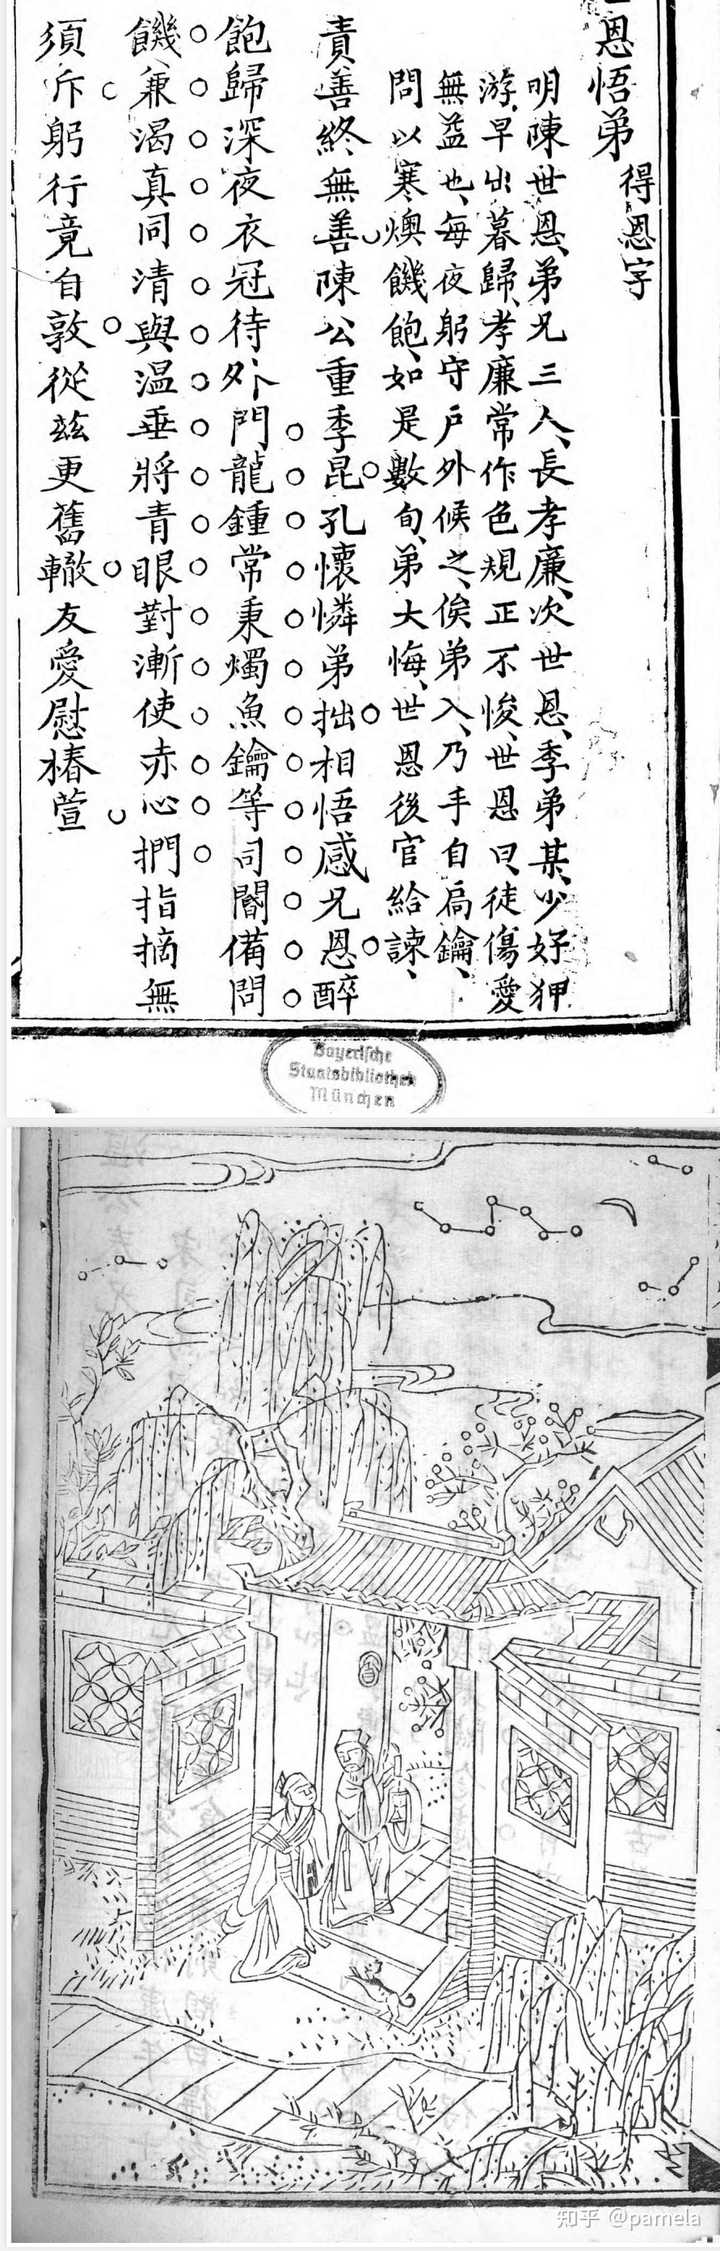 恩悟弟
得恩字
明陳世恩、弟兄三人、長孝廉、次世恩、季弟某、少好狎
游、早出暮歸、孝廉常作色規正不悛、世恩曰、徒傷愛
無益也、每夜躬守戶外候之、俟弟入、乃手自扃鑰、
問以寒燠饑飽、如是數旬、弟大悔、世恩後官給諫、
責善終無善陳公重季昆孔懷憐弟拙相悟感兄恩醉
飽歸深夜衣冠待外門龍鍾常秉燭魚鑰等司閽備問
饑兼渴真同清與溫垂將青眼對漸使赤心捫指摘無
須斥躬行竟自敦從茲更舊轍友愛慰椿萱
Bayerische
Staatsbibliothek
München
知乎 @pamela